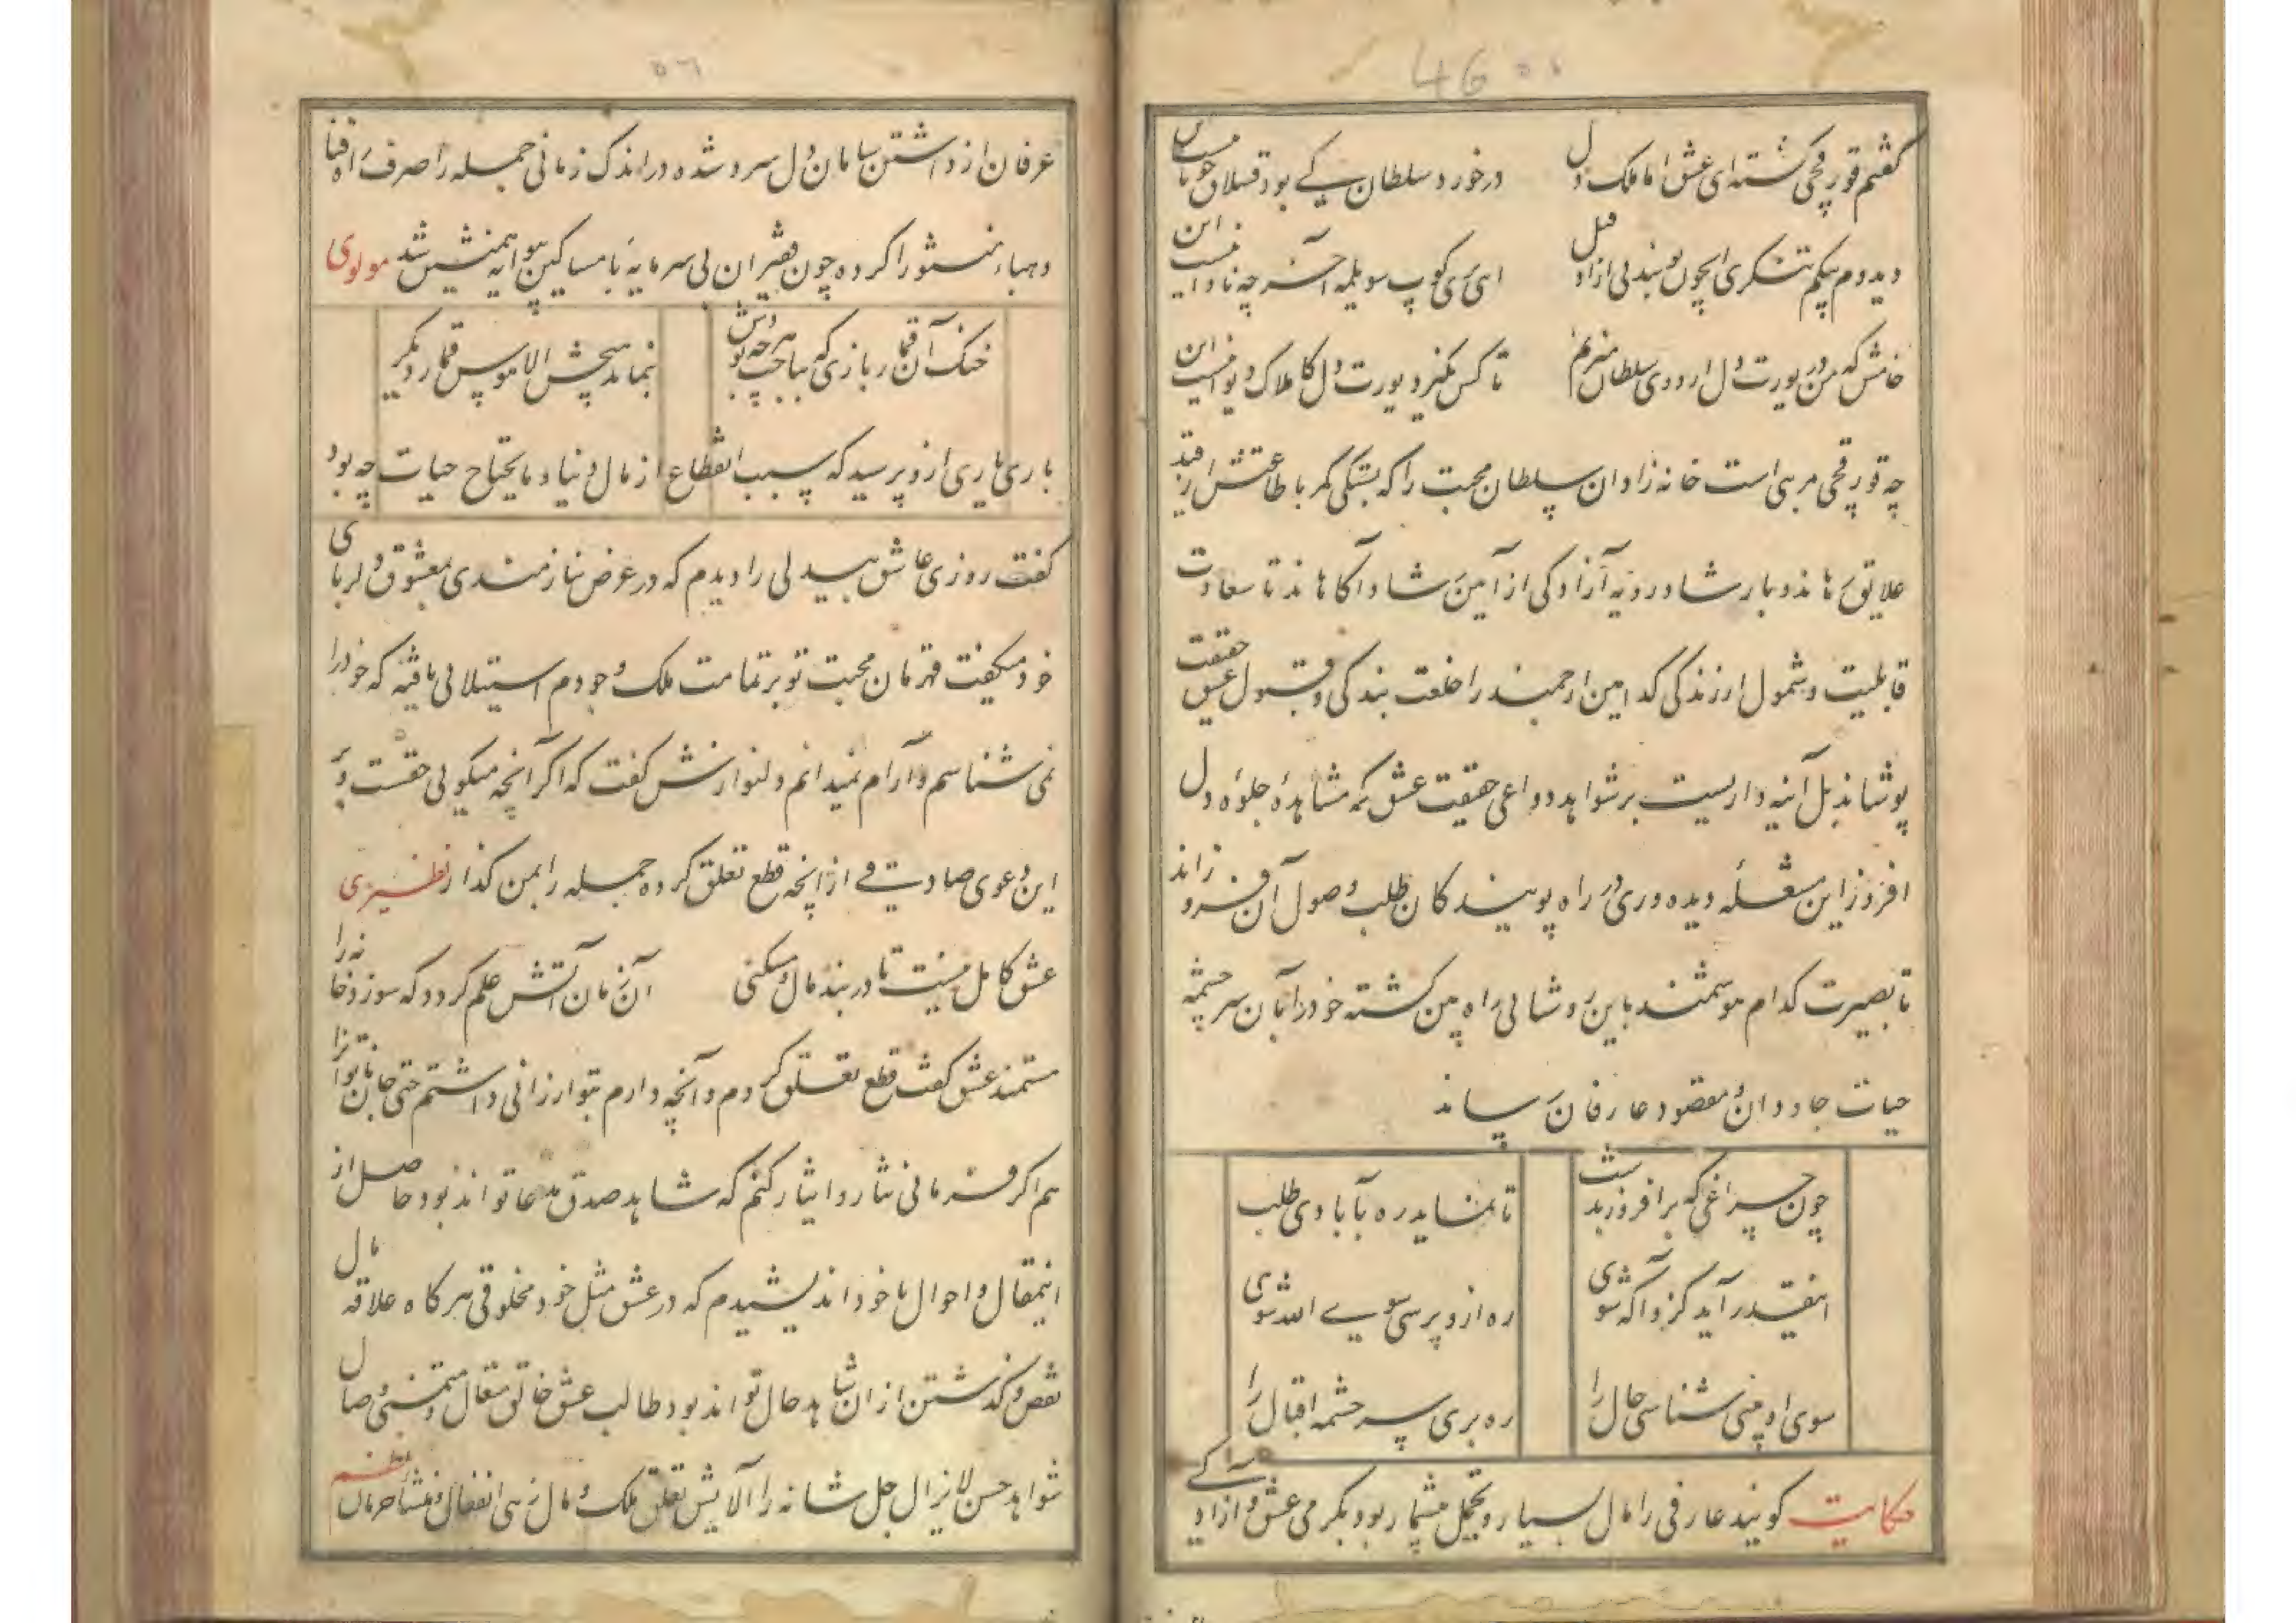 46 ٥٥
گفتم قورقچی گشته ای عشق اما ملک دل
درخورد سلطان کے بود قشلاق
دیدم
خامش که من در یورت دل اردوی سلطان
تا کس نگیرد یورت دل کاملاک دیوانست این
چه قورقچی مربی است خانه زادان سلطان محبت را که بستگی کمر با طاعتش از قید
علایق رهاند و بار شاد رویه آزادگی از آئین شاد آگاهاند تا سعادت
قابلیت و شمول ارزندگی کدامین ارجمند را خلعت بندگی و قبول عشق حقیقت
پوشاند بل آئنه داریست بر شواهد دواعی حقیقت عشق که مشاهدهٔ جلوه دل
افروز این مشغله دیده وری در راه پویندگان طلب وصول آن فروزاند
تا بصیرت کدام هوشمند باین روشنائی راه بین گشته خود را بآن سرچشمه
حیات جاودان و مقصود عارفان رساند
چون چراغی که برافروزد
تا نماید ره بآبادی طلب
اینقدر آید کزو آگه شوی
ره ازو پرسی سوی الله شوی
سوی او چنی شناسی حال را
ره بری سرچشمه اقبال را
حکایت گویند عارفی را مال بسیار و تجمل بیشمار بود مگر می عشق و آزادی
٥٦
عرفان از داشتن سامان دل سرد شده در اندک زمانی جمله را صرف راه افنا
و هباء منثورا کرده چون فقیران بی سرمایه با مساکین همنشین شد مولوی
خنک آن قماربازی که بباخت هر چه بودش
بنماند هیچش الا هوس قمار دیگر
باری یاری ازو پرسید که سبب انقطاع از مال دنیا و مایحتاج حیات چه بود
گفت روزی عاشق بیدلی را دیدم که در عرض نیازمندی معشوق دلربای
خود میگفت قهرمان محبت تو بر تمامت ملک وجودم استیلائی یافته که خود را
نمی شناسم و آرام نمیدانم دلنوازش گفت که اگر آنچه میگوئی حقست و بر
این دعوی صادقی از آنچه قطع تعلق کرده جمله را بمن گذار نظیری
عشق کامل نیست تا در بند مال و مسکنی
آن زمان آتش علم گردد که سوزد خانه را
مستمند عشق گفت قطع تعلق کردم و آنچه دارم بتو ارزانی داشتم حتی جان ناتوانرا
هم اگر فرمائی نثار و ایثار کنم که شاهد صدق مدعا تواند بود حاصل از
اینمقال و احوال با خود اندیشیدم که در عشق مثل خود مخلوقی هرگاه علاقه مال
نقص و گذشتن از ان شاهد حال تواند بود طالب عشق خالق متعال و متمنی وصال
شواهد حسن لایزال جل شانه را آلایش تعلق ملک و مال زهی انفعال و منشأ حرمان نظم